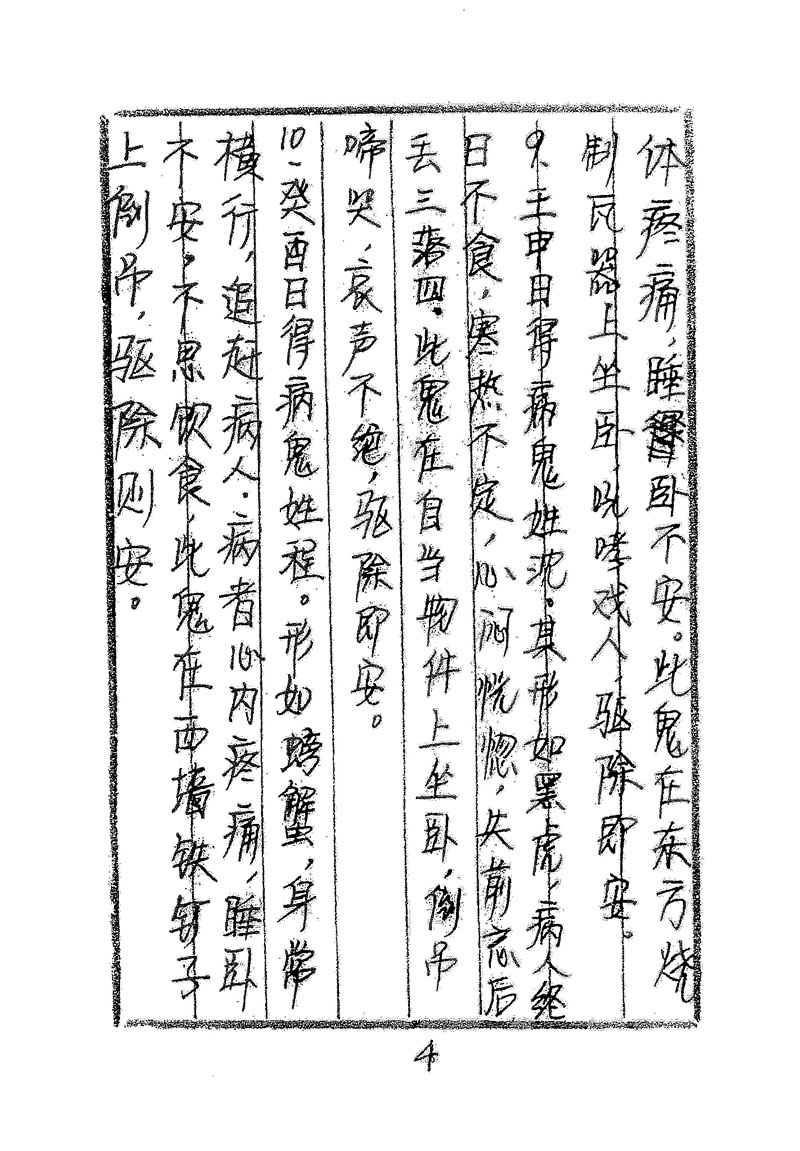 体疼痛，睡卧不安。此鬼在东方烧
制瓦器上坐卧，咆哮戏人，驱除即安。
9、壬申日得病鬼姓沈。其形如黑虎，病人终
日不食，寒热不定，心闷恍惚，失前忘后
丢三落四。此鬼在自当物件上坐卧，倒吊
啼哭，哀声不绝，驱除即安。
10、癸酉日得病鬼姓程。形如螃蟹，身常
横行，追赶病人。病者心内疼痛，睡卧
不安。不思饮食，此鬼在西墙铁钉子
上倒吊，驱除则安。
4